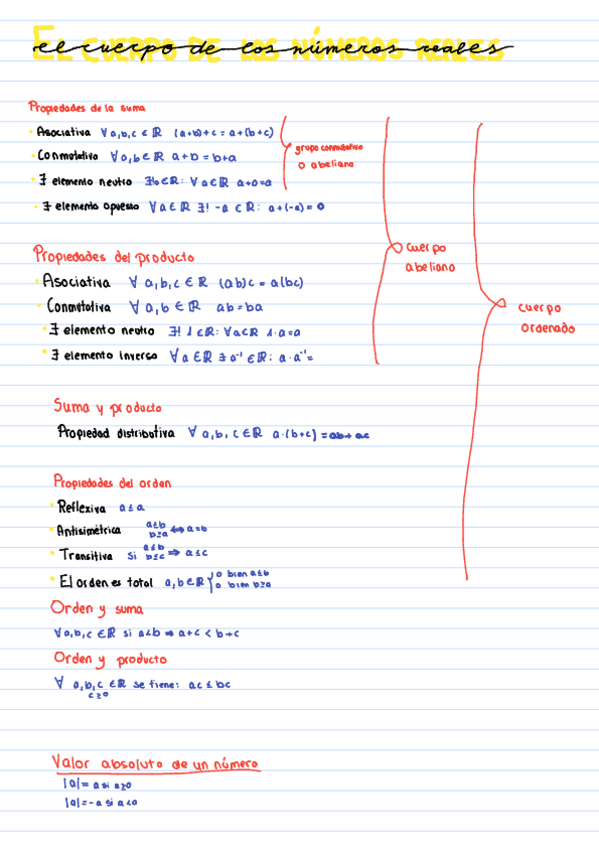 El cuerpo de los números reales
Propiedades de la suma
· Asociativa ∀a,b,c ∈ ℝ (a+b)+c = a+(b+c)
· Conmutativa ∀a,b ∈ ℝ a+b = b+a
grupo conmutativo
o abeliano
· ∃ elemento neutro ∃!0 ∈ ℝ: ∀a ∈ ℝ a+0=a
· ∃ elemento opuesto ∀a ∈ ℝ ∃! -a ∈ ℝ: a+(-a) = 0
cuerpo
abeliano
Propiedades del producto
· Asociativa ∀ a,b,c ∈ ℝ (ab)c = a(bc)
· Conmutativa ∀ a,b ∈ ℝ ab = ba
cuerpo
ordenado
· ∃ elemento neutro ∃! 1 ∈ ℝ: ∀a∈ℝ 1·a=a
· ∃ elemento inverso ∀a ∈ ℝ ∃ a⁻¹ ∈ ℝ: a·a⁻¹=
Suma y producto
Propiedad distributiva ∀ a,b,c ∈ ℝ a·(b+c) = ab+ac
Propiedades del orden
· Reflexiva a≤a
· Antisimétrica a≤b b≥a ⇔ a=b
· Transitiva Si a≤b b≤c ⇒ a≤c
· El orden es total a,b∈ℝ { o bien a≤b o bien b≥a
Orden y suma
∀a,b,c ∈ ℝ si a<b ⇒ a+c < b+c
Orden y producto
∀ a,b,c ∈ ℝ se tiene: ac ≤ bc
c≥0
Valor absoluto de un número
|a|= a si a≥0
|a|=-a si a<0